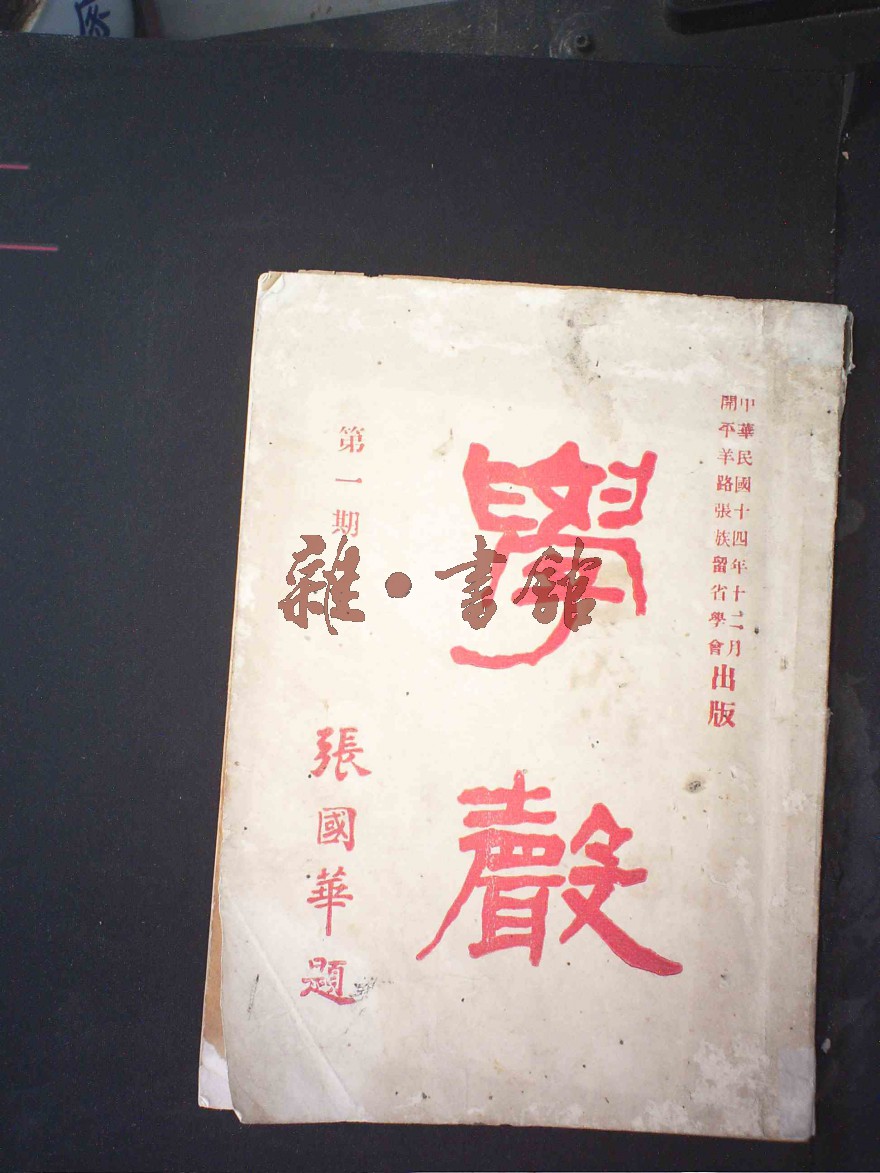 中華民國十四年十二月
開平羊路張族留省學會出版
學聲
第一期
張國華題
雜•書館